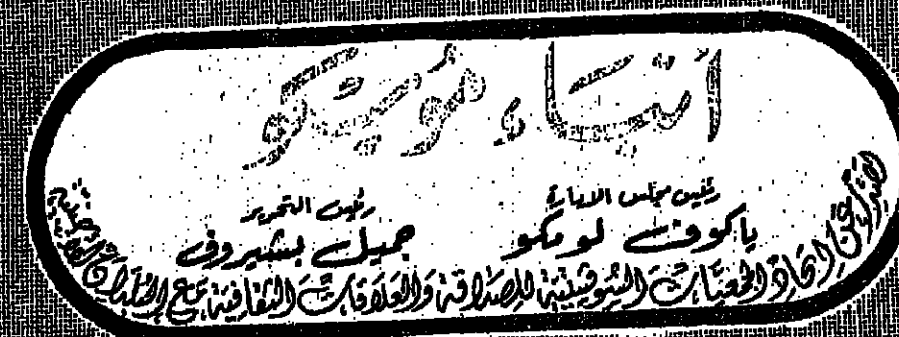 أنباء موسكو
رئيس مجلس الادارة
ياكوف لومكو
رئيس التحرير
جميل بشيروف
اتحاد الجمعيات السوفيتية للصداقة والعلاقات الثقافية مع البلدان